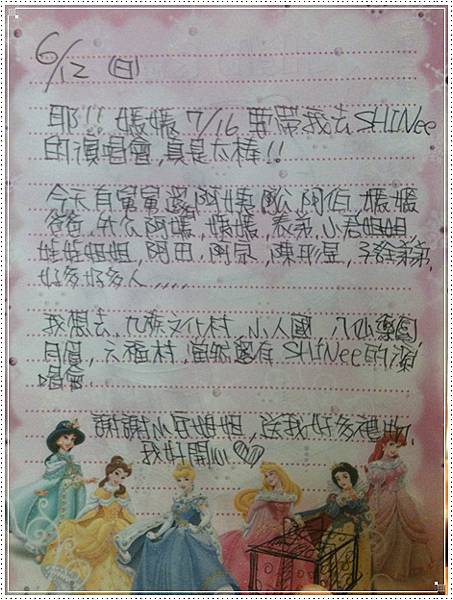 6/12 (日)
耶!! 媽媽 7/16 要帶我去 SHINee
的演唱會,真是太棒!!
今天有舅舅還阿姨 阿伯 媽媽
爸爸 阿嬤,媽媽,表弟,小君姐姐
娃娃姐姐,阿田,阿宗,陳彤昱,弟弟,
好多好多人,,,,,
我想去,九族文化村,小人國 八仙樂園
月眉,六福村,當然還有 SHINee的演
唱會
謝謝小巫姐姐,送我好多禮物,
我好開心♡♡